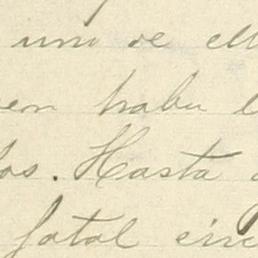 uno de ell
haber l
los. Hasta
fatal circ